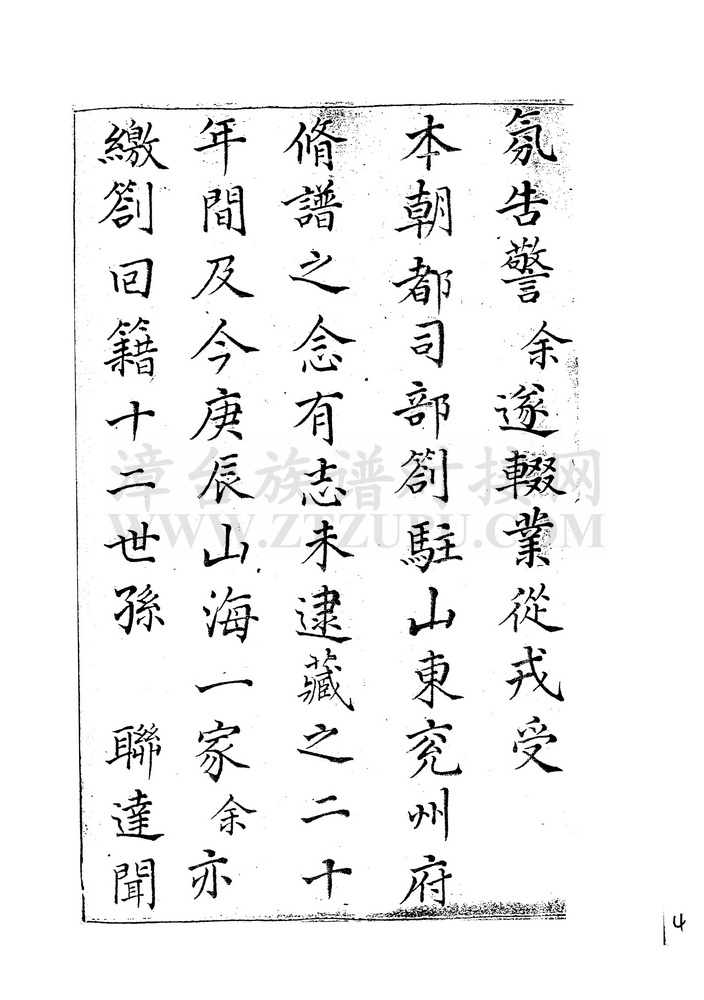 氛告警余遂輟業從戎受
本朝都司部劄駐山東兗州府
脩譜之念有志未逮藏之二十
年間及今庚辰山海一家余亦
繳劄回籍十二世孫　聯達聞
漳台族谱对接网
WWW.ZTZUPU.COM
4